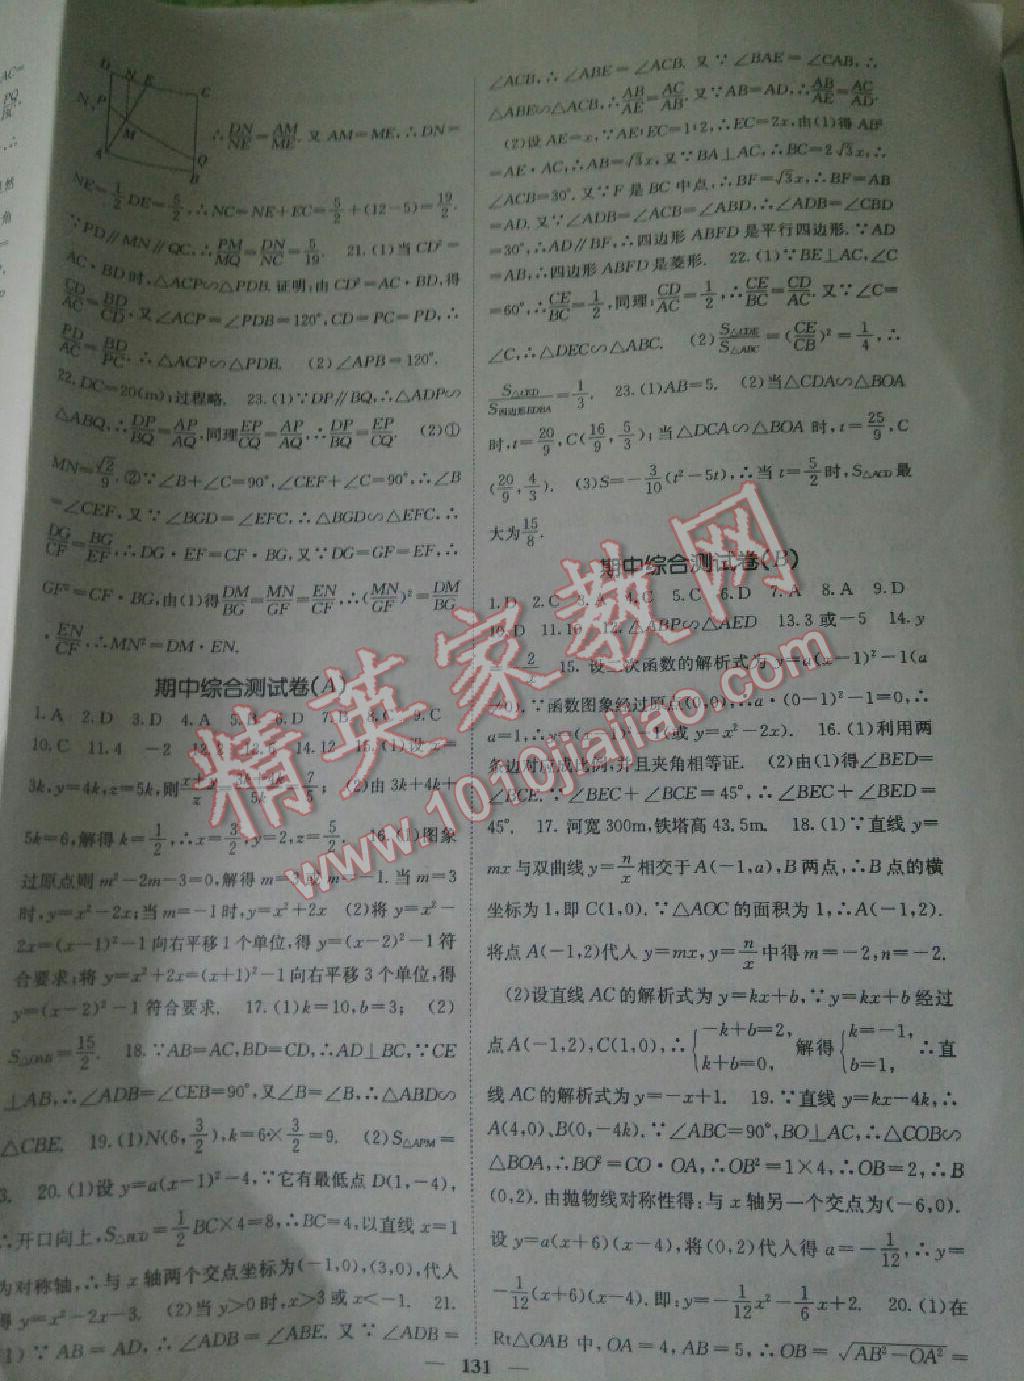 D N E
C
N P
M
A
Q
B
∴DN/NE=AM/ME. 又 AM=ME,∴DN=
NE=1/2 DE=5/2,∴NC=NE+EC=5/2+(12-5)=19/2.
∵PD∥MN∥QC,∴PM/MQ=DN/NC=5/19. 21.(1)当 CD²=
AC·BD时,△ACP∽△PDB.证明:由CD²=AC·BD,得
CD/AC=BD/CD,又∠ACP=∠PDB=120°,CD=PC=PD,∴
PD/AC=BD/PC,∴△ACP∽△PDB. (2)∠APB=120°.
22.DC=20(m);过程略. 23.(1)∵DP∥BQ,∴△ADP∽
△ABQ,∴DP/BQ=AP/AQ,同理EP/CQ=AP/AQ,∴DP/BQ=EP/CQ. (2)①
MN=√2/9.②∵∠B+∠C=90°,∠CEF+∠C=90°,∴∠B
=∠CEF,又∵∠BGD=∠EFC,∴△BGD∽△EFC,∴
DG/CF=BG/EF,∴DG·EF=CF·BG,又∵DG=GF=EF,∴
GF²=CF·BG,由(1)得DM/BG=MN/GF=EN/CF,∴(MN/GF)²=DM/BG
·EN/CF,∴MN²=DM·EN.
期中综合测试卷(A)
1.A 2.D 3.D 4.A 5.B 6.D 7.B 8.C 9.C
10.C 11.4 -2 12.2 13.6 14.12 15.(1)设 x=
3k,y=4k,z=5k,则(x+y)/z=(3k+4k)/5k=7/5; (2)由3k+4k+
5k=6,解得k=1/2,∴x=3/2,y=2,z=5/2. 16.(1)图象
过原点则 m²-2m-3=0,解得 m=3或 m=-1.当 m=3
时,y=x²-2x;当m=-1时,y=x²+2x (2)将 y=x²-
2x=(x-1)²-1向右平移1个单位,得 y=(x-2)²-1符
合要求;将 y=x²+2x=(x+1)²-1向右平移3个单位,得
y=(x-2)²-1符合要求. 17.(1)k=10,b=3; (2)
S△OAB=15/2. 18.∵AB=AC,BD=CD,∴AD⊥BC,∵CE
⊥AB,∴∠ADB=∠CEB=90°,又∠B=∠B,∴△ABD∽
△CBE. 19.(1)N(6,3/2),k=6×3/2=9. (2)S△APM=
3. 20.(1)设 y=a(x-1)²-4,∵它有最低点 D(1,-4),
∴开口向上,S△BCD=1/2 BC×4=8,∴BC=4,以直线 x=1
为对称轴,∴与 x 轴两个交点坐标为(-1,0),(3,0),代人
得 y=x²-2x-3. (2)当 y>0时,x>3或 x<-1. 21.
(1)∵AB=AD,∴∠ADB=∠ABE.又∵∠ADB=
∠ACB,∴∠ABE=∠ACB.又∵∠BAE=∠CAB,∴
△ABE∽△ACB,∴AB/AE=AC/AB.又∵AB=AD,∴AB/AE=AC/AD.
(2)设AE=x,∵AE:EC=1:2,∴EC=2x,由(1)得 AB²
=AE·AC,∴AB=√3x,又∵BA⊥AC,∴BC=2√3x,∴
∠ACB=30°.又∵F 是 BC 中点,∴BF=√3x,∴BF=AB
=AD.又∵∠ADB=∠ACB=∠ABD,∴∠ADB=∠CBD
=30°,∴AD∥BF,∴四边形ABFD是平行四边形.∵AD
=AB,∴四边形 ABFD 是菱形. 22.(1)∵BE⊥AC,∠C
=60°,∴CE/BC=1/2,同理:CD/AC=1/2,∴CE/BC=CD/AC.又∵∠C=
∠C,∴△DEC∽△ABC. (2)S△CDE/S△ABC=(CE/CB)²=1/4,∴
S△CED/S四边形EDBA=1/3. 23.(1)AB=5. (2)当△CDA∽△BOA
时,t=20/9,C(16/9,5/3);当△DCA∽△BOA 时,t=25/9,C
(20/9,4/3). (3)S=-3/10(t²-5t),∴当 t=5/2时,S△ACD最
大为15/8.
期中综合测试卷(B)
1.D 2.C 3.A 4.C 5.C 6.D 7.A 8.A 9.D
10.D 11.10 12.△ABP∽△AED 13.3或-5 14.y
15.设二次函数的解析式为 y=a(x-1)²-1(a
≠0).∵函数图象经过原点(0,0),∴a·(0-1)²-1=0,∴
a=1,∴y=(x-1)²-1(或 y=x²-2x). 16.(1)利用两
条边对应成比例,并且夹角相等证. (2)由(1)得∠BED=
∠BCE.∵∠BEC+∠BCE=45°,∴∠BEC+∠BED=
45°. 17.河宽300m,铁塔高43.5m. 18.(1)∵直线 y=
mx与双曲线y=n/x相交于A(-1,a),B两点,∴B点的横
坐标为1,即 C(1,0).∵△AOC的面积为1,∴A(-1,2).
将点 A(-1,2)代人 y=mx,y=n/x中得m=-2,n=-2.
(2)设直线 AC的解析式为 y=kx+b,∵y=kx+b经过
点A(-1,2),C(1,0),∴{-k+b=2, k+b=0, 解得{k=-1, b=1, ∴直
线AC的解析式为 y=-x+1. 19.∵直线 y=kx-4k,∴
A(4,0),B(0,-4k).∵∠ABC=90°,BO⊥AC,∴△COB∽
△BOA,∴BO²=CO·OA,∴OB²=1×4,∴OB=2,∴B
(0,2).由抛物线对称性得:与 x 轴另一个交点为(-6,0).
设 y=a(x+6)(x-4),将(0,2)代入得 a=-1/12,∴y=
-1/12(x+6)(x-4).即:y=-1/12x²-1/6x+2. 20.(1)在
Rt△OAB 中,OA=4,AB=5,∴OB=√(AB²-OA²)=
— 131 —
精英家教网
www.1010jiajiao.com